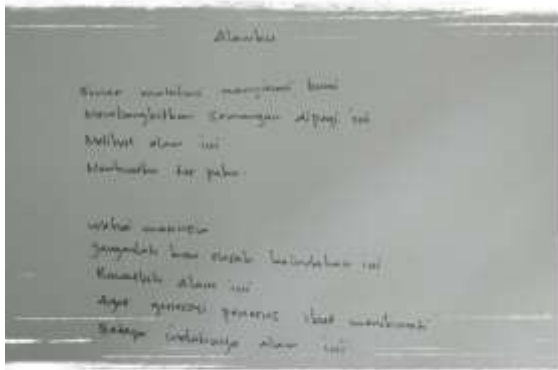 Alamku
Sinar matahari menyinari bumi
Membangkitkan semangat dipagi ini
Melihat alam ini
Membuatku ter
wahai manusia
janganlah kau rusak keindahan ini
Rawatlah alam ini
Agar generasi penerus ikut menikmati
Betapa indahnya alam ini